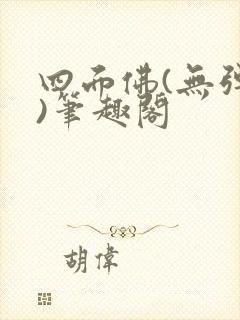 四面佛(無彈
)筆趣閣
胡偉